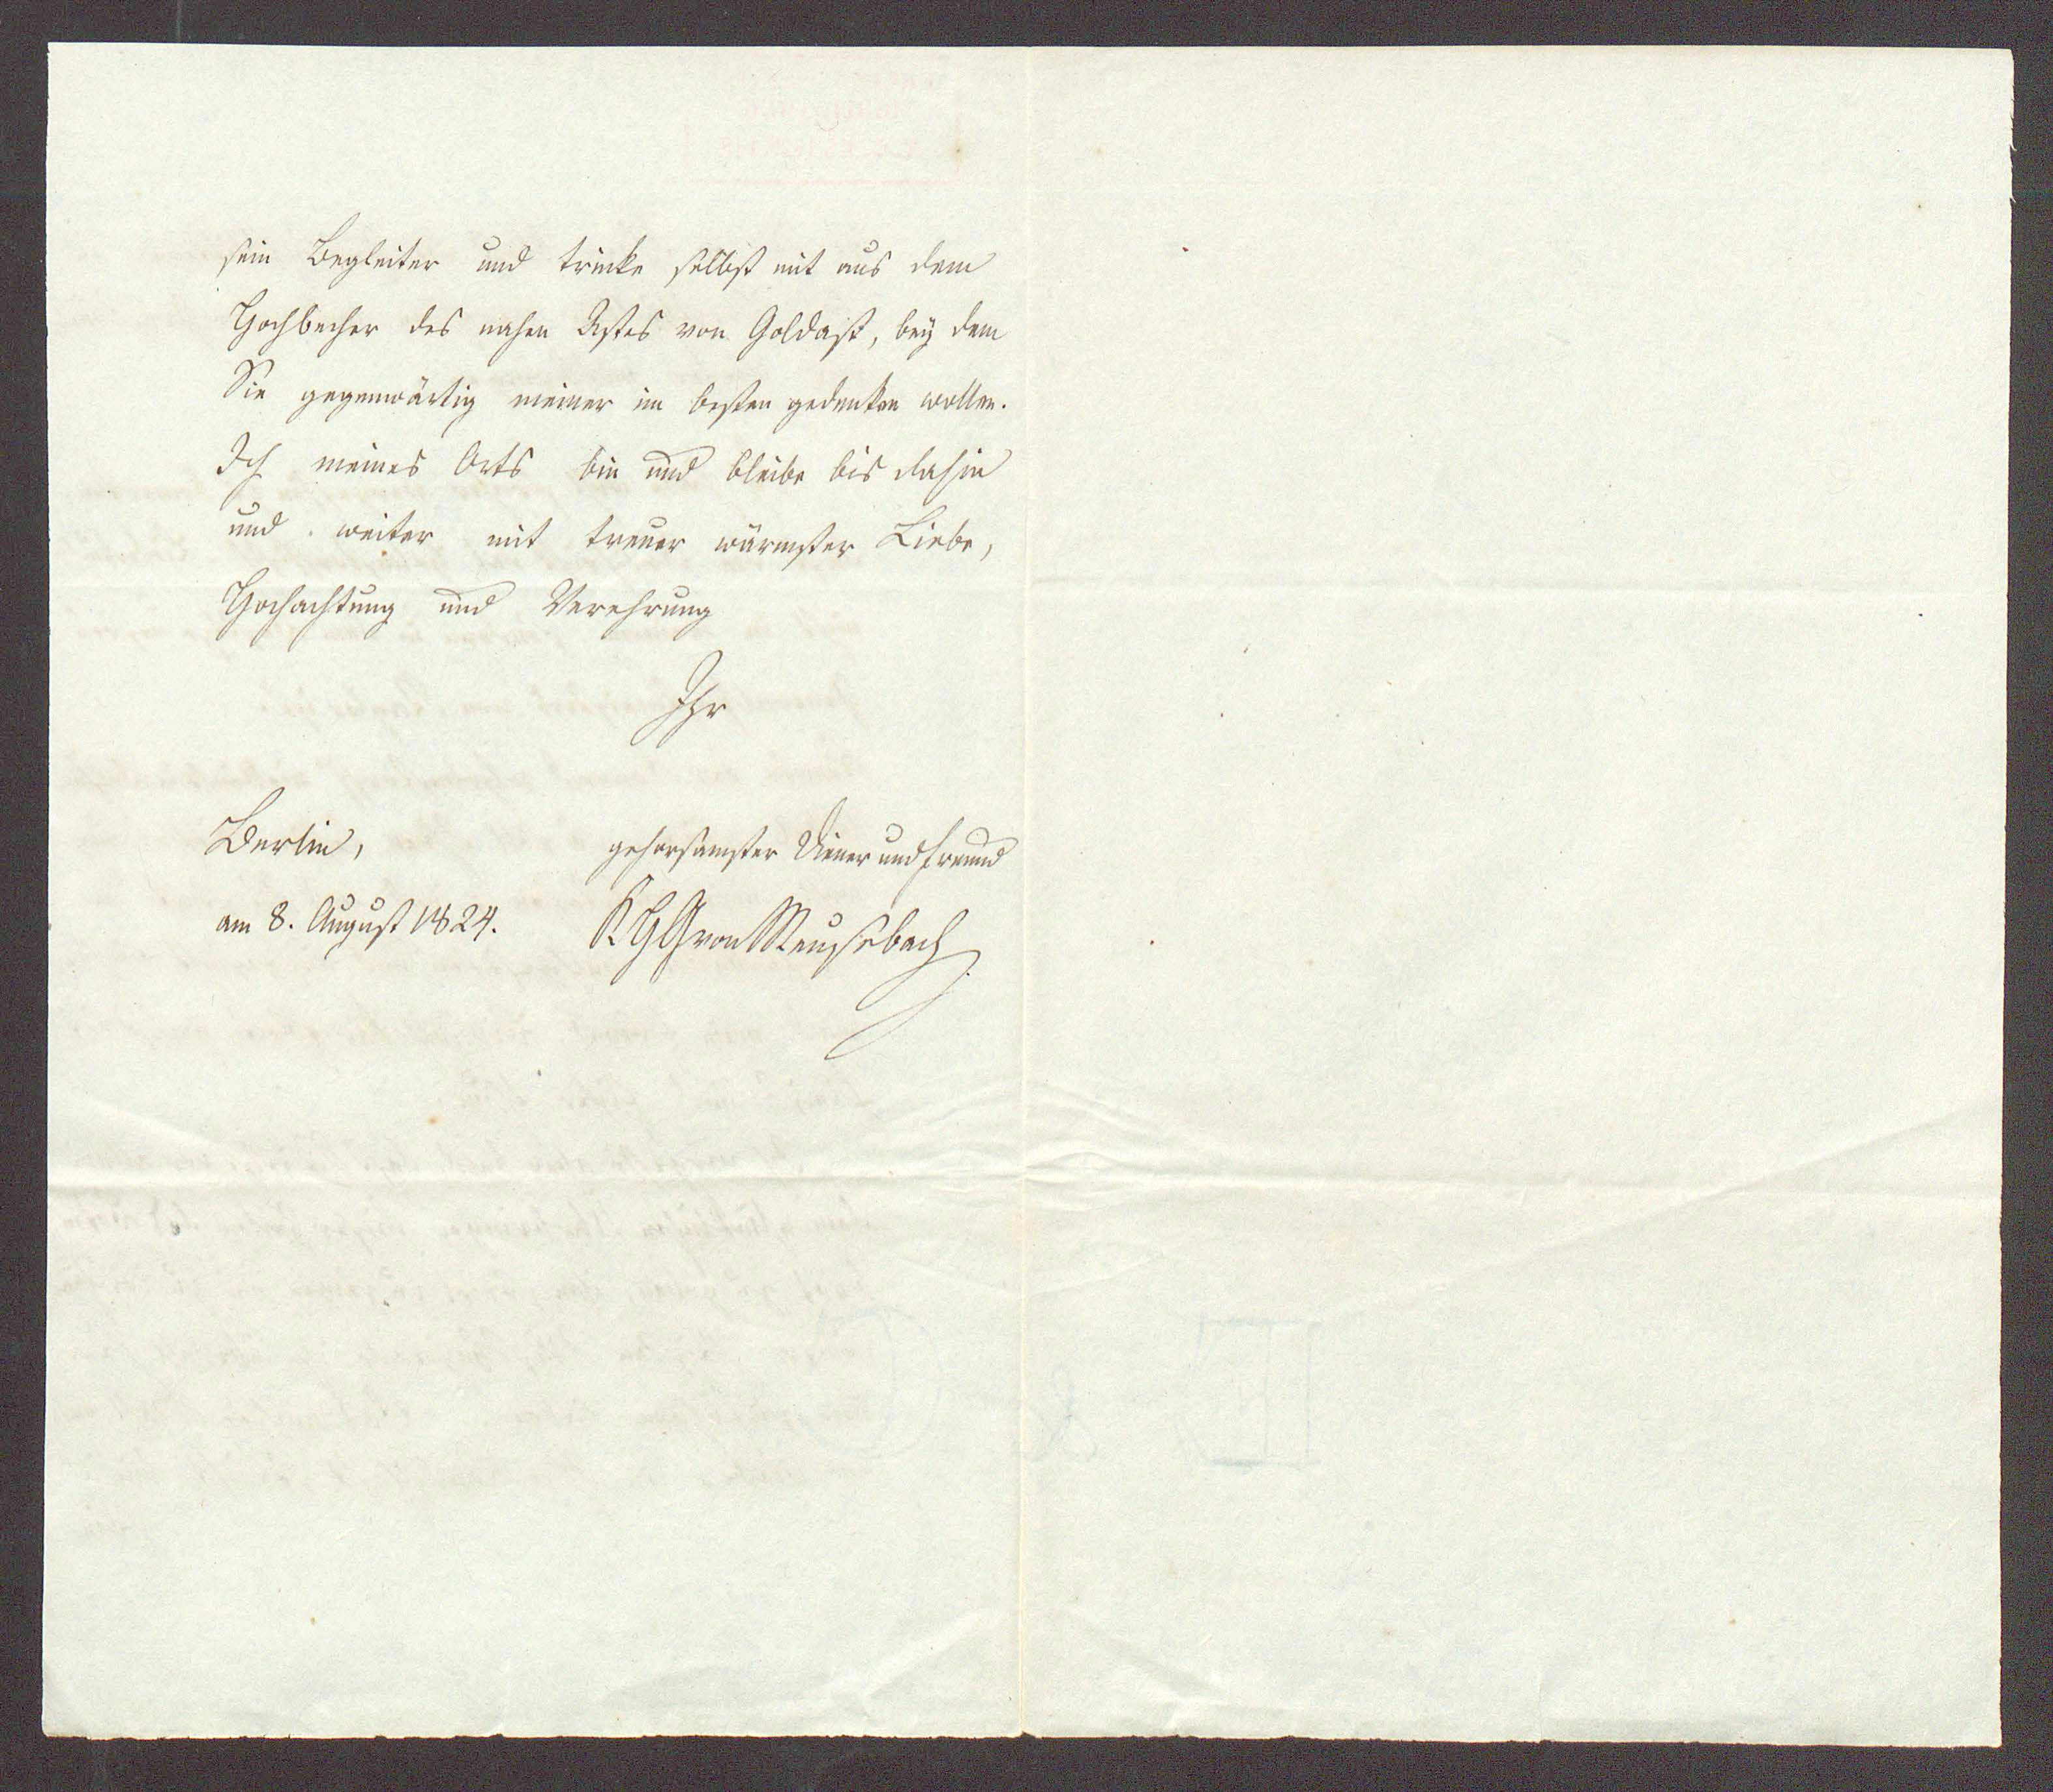 sein Begleiter und trinke selbst mit aus dem
Hochbecher des nahen Astes von Goldast, bey dem
Sie gegenwärtig meiner im besten gedenken wollen.
Ich meines Orts bin und bleibe bis dahin
und weiter mit treuer wärmster Liebe,
Hochachtung und Verehrung
Ihr
Berlin,
gehorsamster Diener und Freund
am 8. August 1824.
KHGvonMeusebach